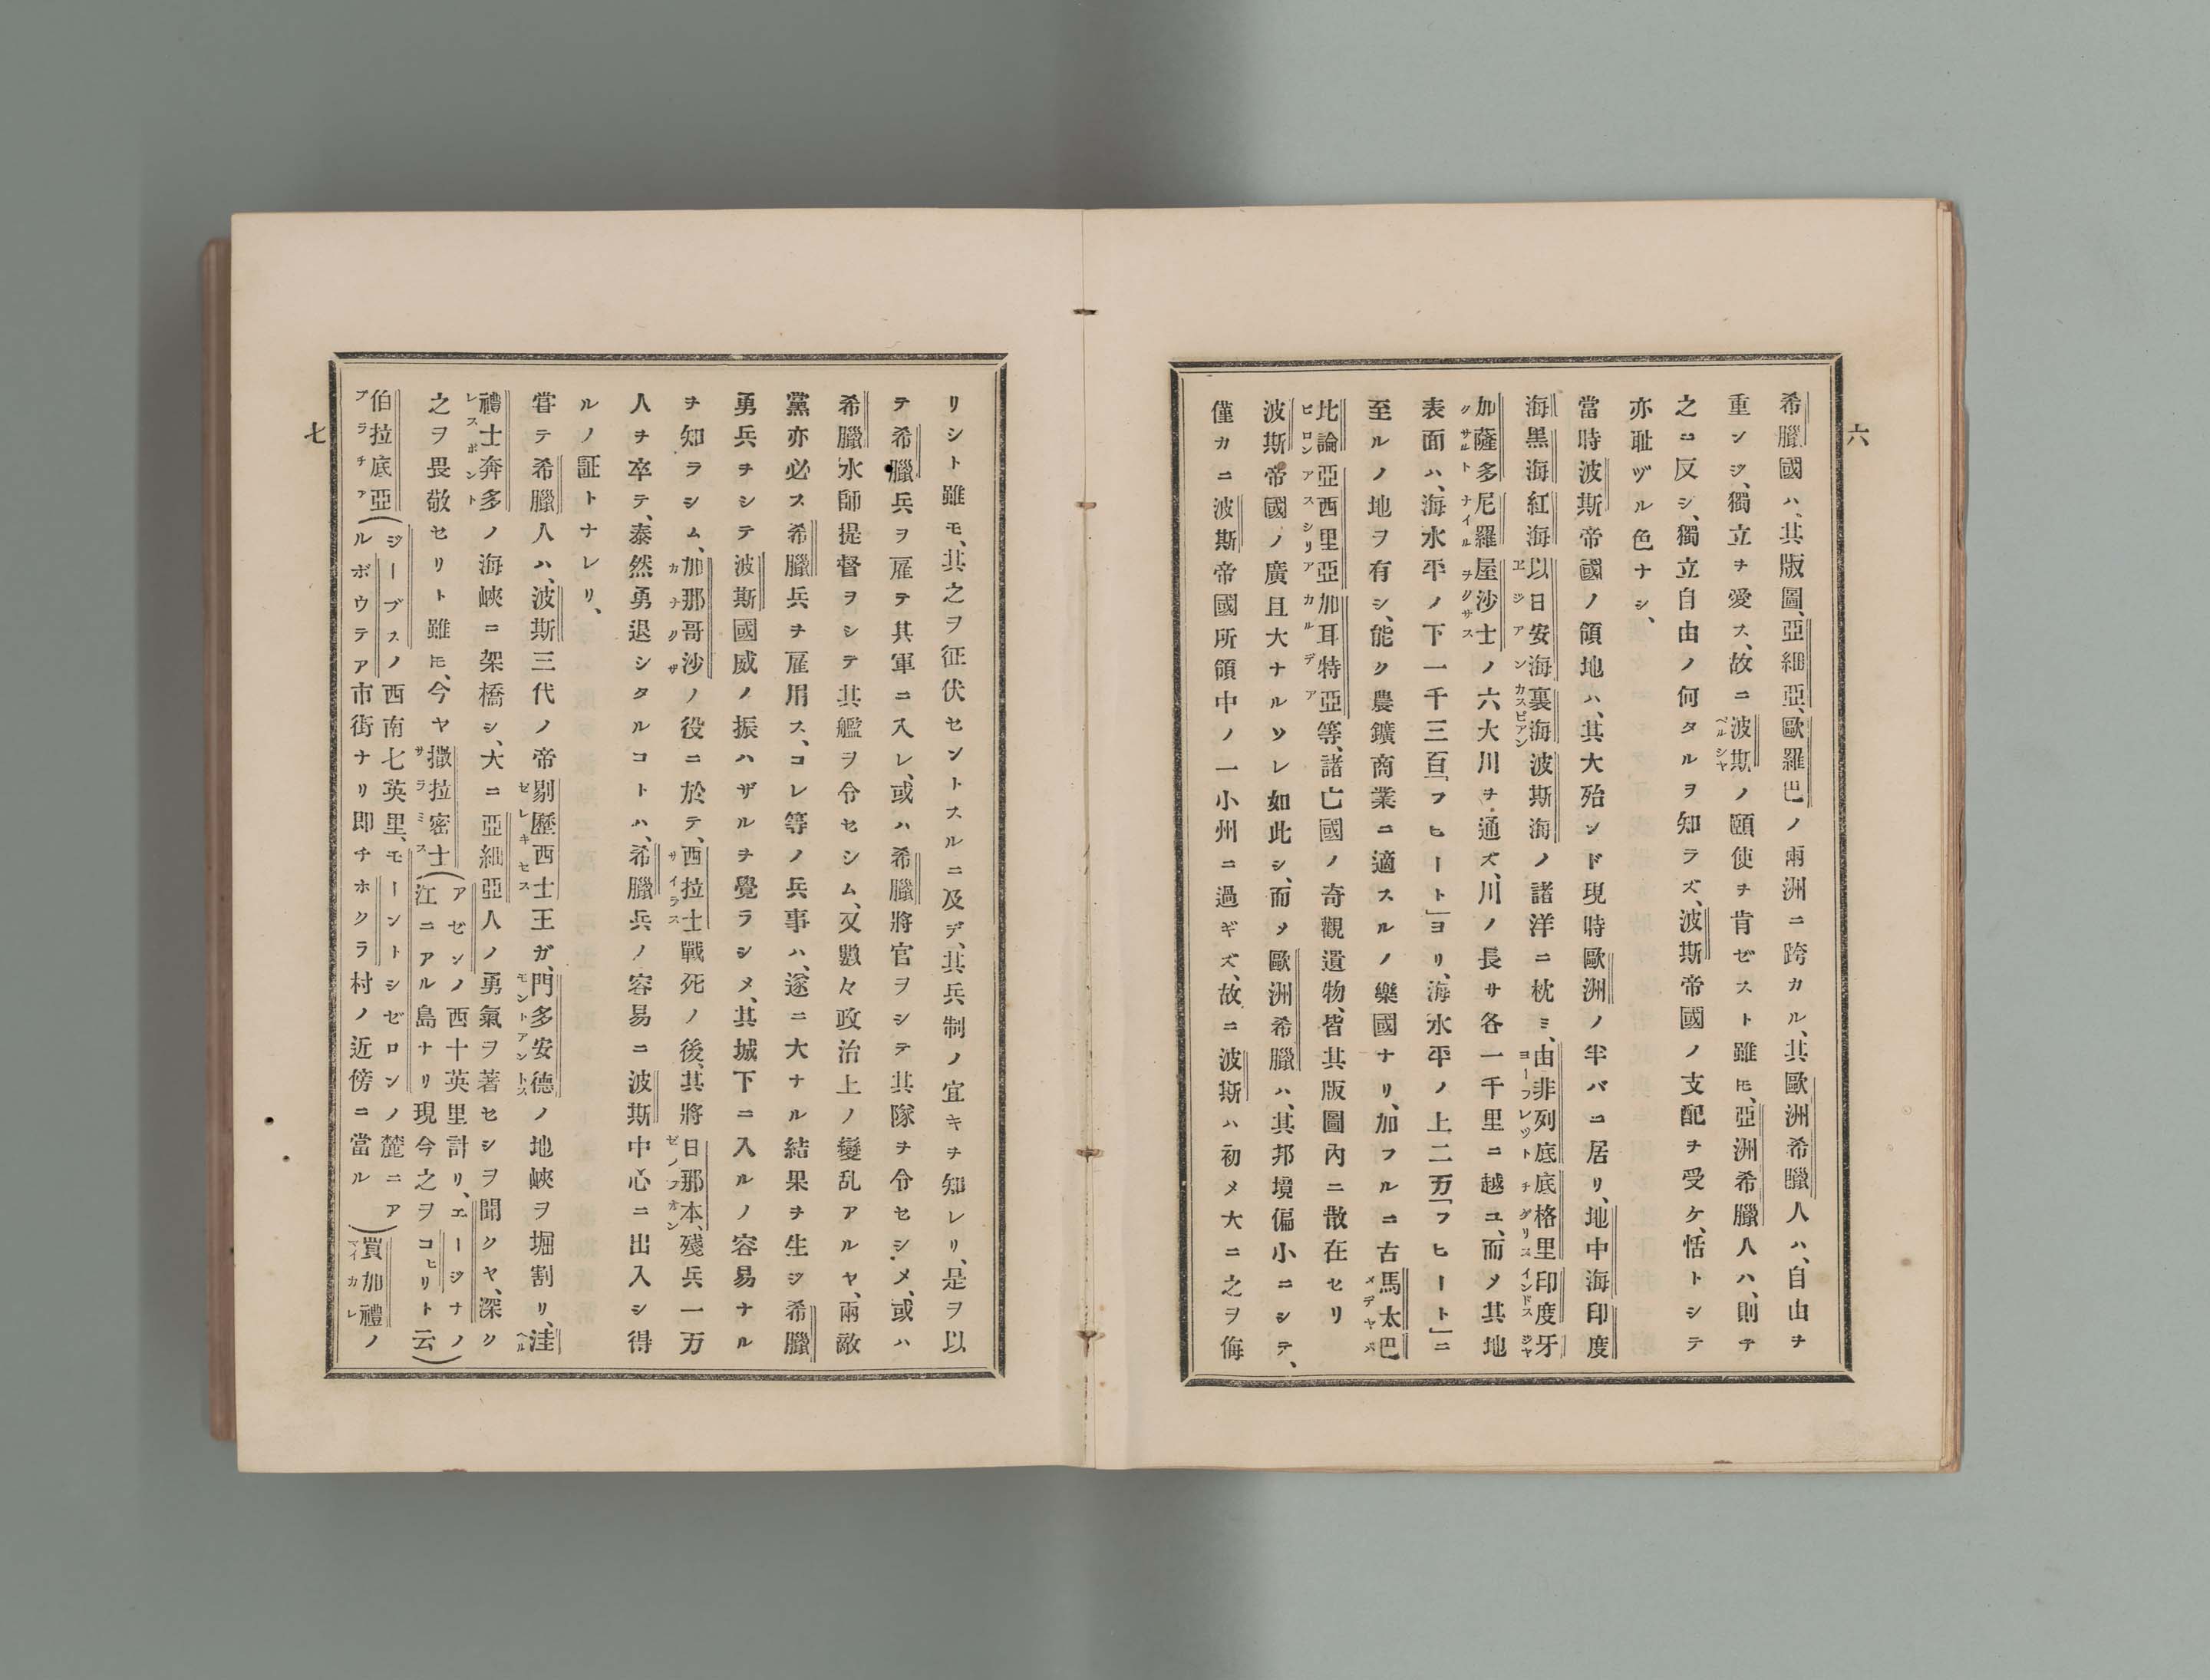 六
希臘國ハ、其版圖、亞細亞、歐羅巴ノ兩洲ニ跨カル、其歐洲希臘人ハ、自由ヲ
重ンジ、獨立ヲ愛ス、故ニ波斯ノ頤使ヲ肯ゼスト雖𪜈、亞洲希臘人ハ、則チ
ペルシヤ
之ニ反シ、獨立自由ノ何タルヲ知ラズ、波斯帝國ノ支配ヲ受ケ、恬トシテ
亦耻ヅル色ナシ、
當時波斯帝國ノ領地ハ、其大殆ンド現時歐洲ノ半バニ居リ、地中海印度
海黒海紅海以日安海裏海波斯海ノ諸洋ニ枕ミ、由非列底底格里印度牙
ヱジアン カスピアン ヨーフレツト チグリス インドス ジヤ
加薩多尼羅屋沙士ノ六大川ヲ通ズ、川ノ長サ各一千里ニ越ユ、而メ其地
クサルト ナイル ヲクサス
表面ハ、海水平ノ下一千三百「フヒート」ヨリ、海水平ノ上二万「フヒート」ニ
至ルノ地ヲ有シ、能ク農鑛商業ニ適スルノ樂國ナリ、加フルニ古馬太巴
メデヤバ
比論亞西里亞加耳特亞等、諸亡國ノ奇觀遺物、皆其版圖內ニ散在セリ
ヒロン アスシリア カルデア
波斯帝國ノ廣且大ナルソレ如此シ、而メ歐洲希臘ハ、其邦境偏小ニシテ、
僅カニ波斯帝國所領中ノ一小州ニ過ギズ、故ニ波斯ハ初メ大ニ之ヲ侮
リシト雖モ、其之ヲ征伏セントスルニ及デ、其兵制ノ宜キヲ知レリ、是ヲ以
テ希臘兵ヲ雇テ其軍ニ入レ、或ハ希臘將官ヲシテ其隊ヲ令セシメ、或ハ
希臘水師提督ヲシテ其艦ヲ令セシム、又數々政治上ノ變乱アルヤ、兩敵
黨亦必ス希臘兵ヲ雇用ス、コレ等ノ兵事ハ、遂ニ大ナル結果ヲ生ジ希臘
勇兵ヲシテ波斯國威ノ振ハザルヲ覺ラシメ、其城下ニ入ルノ容易ナル
ヲ知ラシム、加那哥沙ノ役ニ於テ、西拉士戰死ノ後、其將日那本、殘兵一万
カナクサ サイラス ゼノフオン
人ヲ卒テ、泰然勇退シタルコトハ、希臘兵ノ容易ニ波斯中心ニ出入シ得
ルノ証トナレリ、
甞テ希臘人ハ、波斯三代ノ帝剔歷西士王ガ、門多安德ノ地峽ヲ堀割リ、洼
ゼレキセス モントアントス ヘル
禮士奔多ノ海峽ニ架橋シ、大ニ亞細亞人ノ勇氣ヲ著セシヲ聞クヤ、深ク
レスポント
之ヲ畏敬セリト雖𪜈、今ヤ撒拉密士(アゼンノ西十英里計リ、エージナノ
サラミス
江ニアル島ナリ現今之ヲコヒリト云)
伯拉底亞(ジーブスノ西南七英里、モーントシゼロンノ麓ニア
プラチア
ルボウテア市街ナリ即チホクラ村ノ近傍ニ當ル)買加禮ノ
マイカレ
七